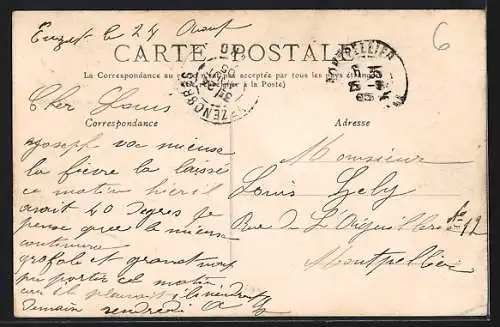 Euzet le 24 Aout
CARTE POSTALE
La Correspondance au recto n'est pas acceptée par tous les pays étrangers
à la Poste)
6
MONTPELLIER
Cher Louis
Correspondance
Adresse
Joseph va mieux
la fievre la laissé
ce matin hier il
avait 40 degres Je
pense que le mieux
continuera
et
matin
il
demain vendredi
Monsieur
Louis Gely
Rue de L'Aiguillerie No 12
Montpellier